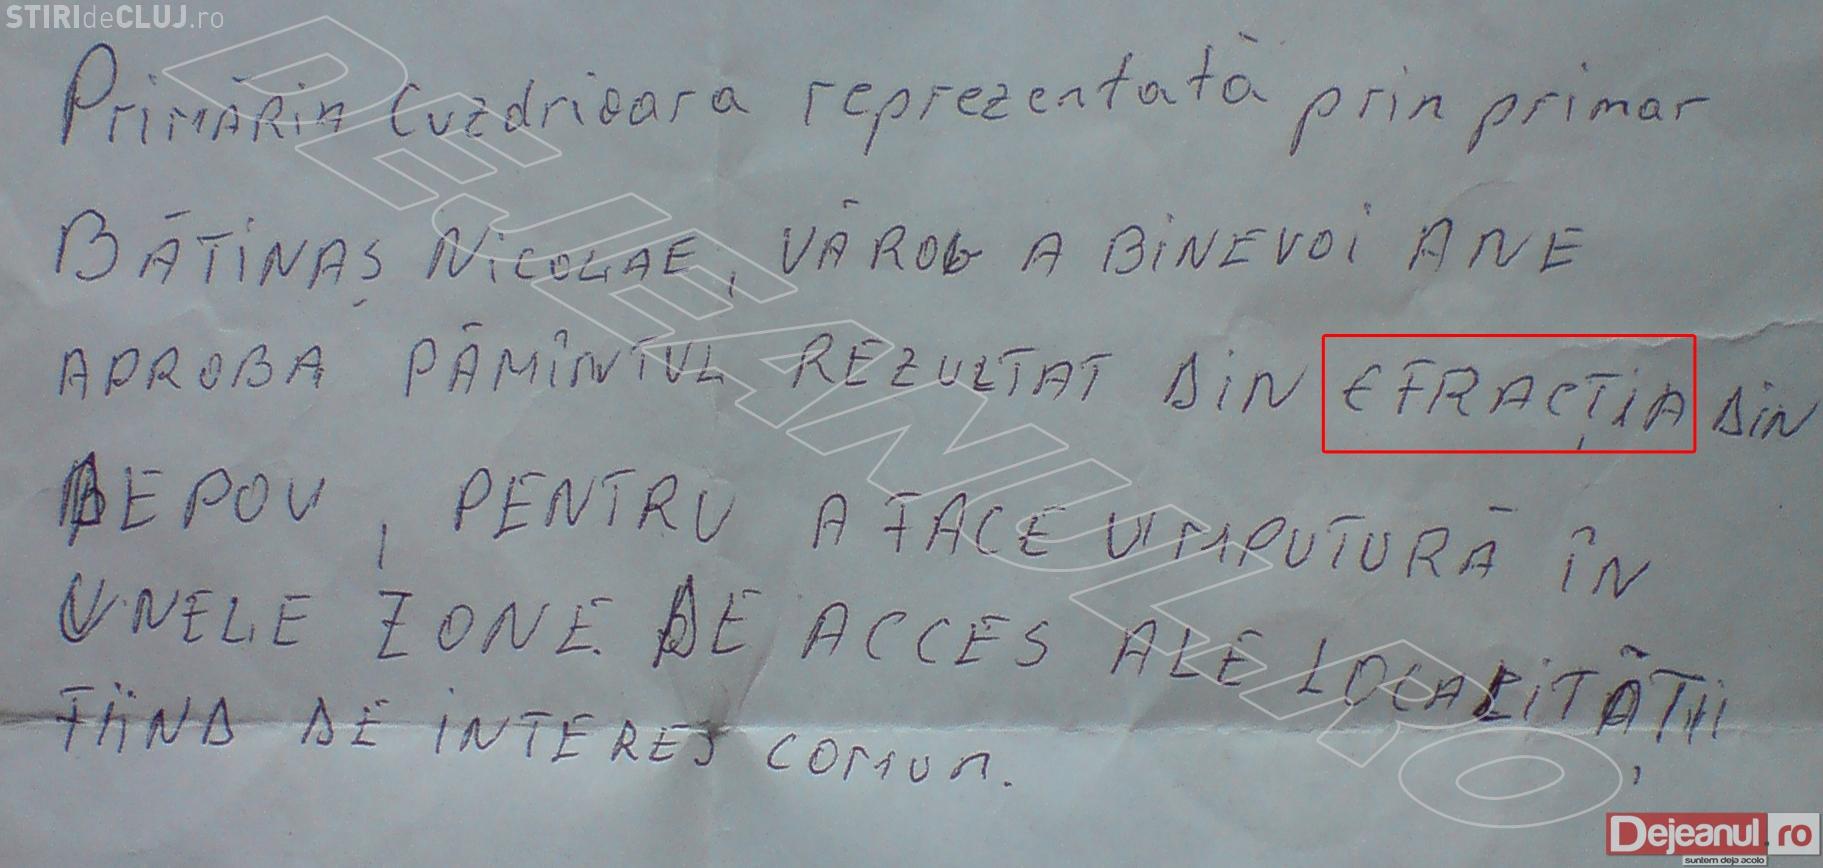 STIRIdeCLUJ.ro
PRIMĂRIA Cuzdrioara reprezentată prin primar
BĂTINAȘ NICOLAE, VĂROG A BINEVOI ANE
APROBA PĂMÎNTUL REZULTAT DIN EFRACȚIA DIN
DEPOU, PENTRU A FACE UMPUTURĂ ÎN
UNELE ZONE DE ACCES ALE LOCALITĂȚII
FIIND DE INTERES COMUN.
DEJEANUL.RO
Dejeanul.ro
suntem deja acolo